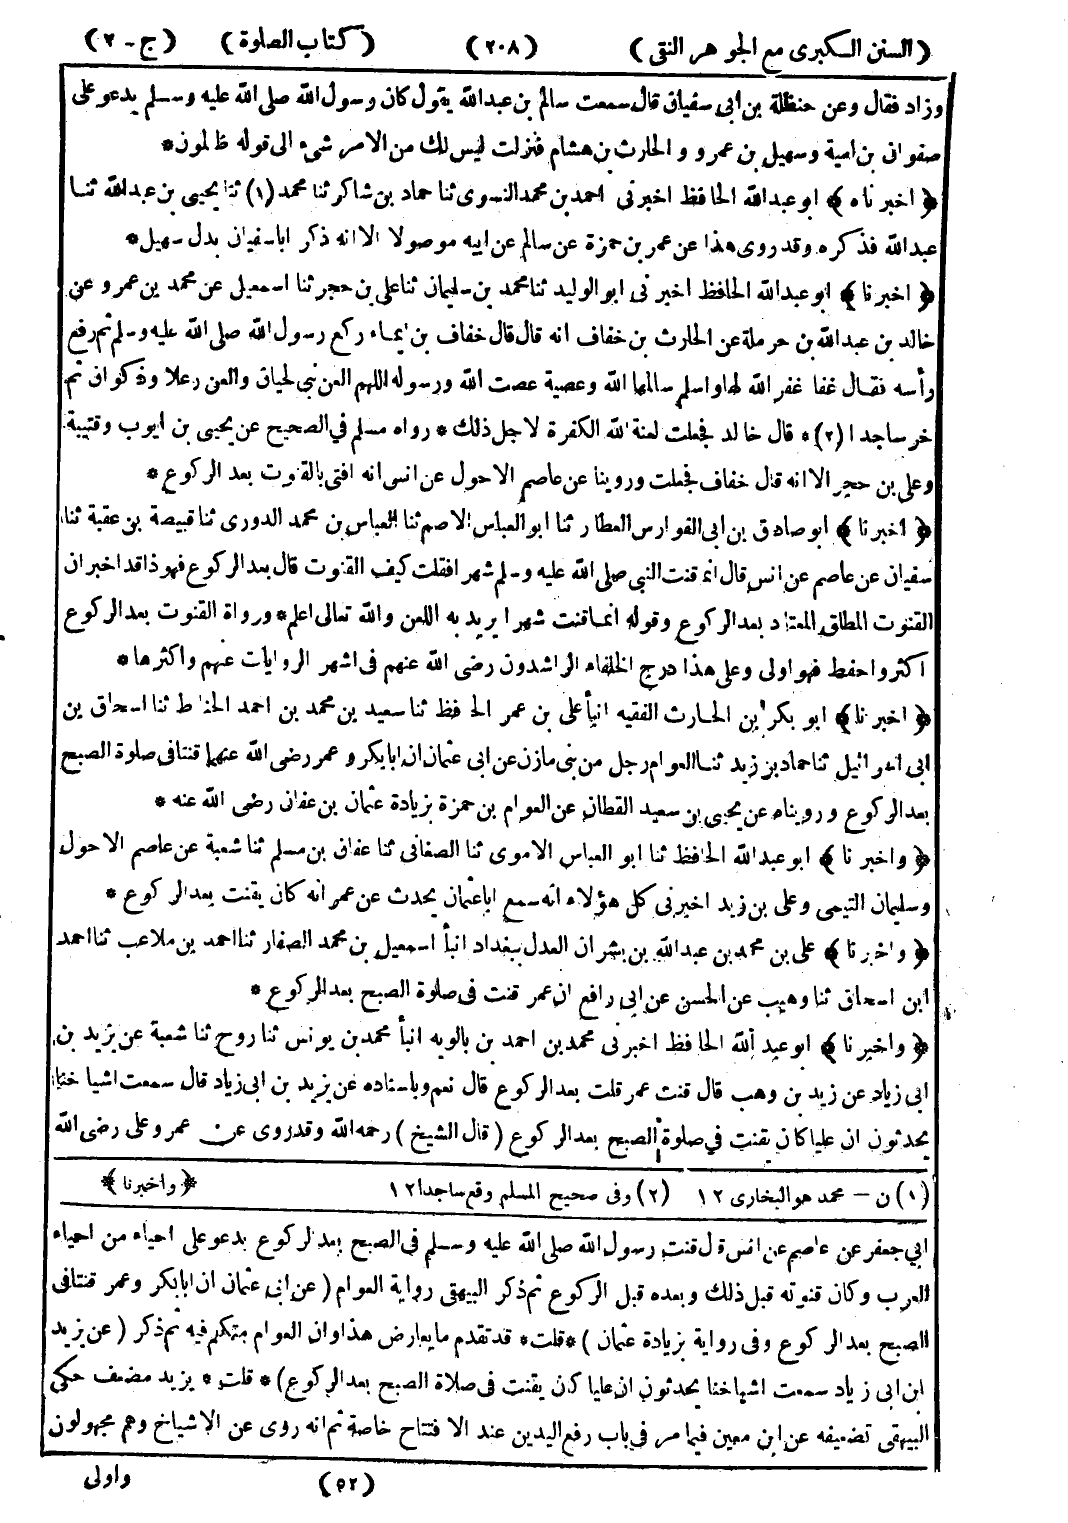 (السنن الكبرى مع الجوهر النقى) (٢٠٨) (كتاب الصلوة) (ج - ٢)
وزاد فقال وعن حنظلة بن ابى سفيان قال سمعت سالم بن عبدالله يقول كان رسول الله صلى الله عليه وسلم يدعو على
صفوان بن امية وسهيل بن عمرو والحارث بن هشام فنزلت ليس لك من الامر شىء الى قوله ظالمون*
﴿ اخبرناه ﴾ ابو عبدالله الحافظ اخبرنى احمد بن محمد النسوى ثنا حماد بن شاكر ثنا محمد (١) ثنا يحيى بن عبدالله ثنا
عبدالله فذكره وقد روى هذا عن عمر بن حمزة عن سالم عن ابيه موصولا الا انه ذكر ابا سفيان بدل سهيل*
﴿ اخبرنا ﴾ ابو عبدالله الحافظ اخبرنى ابو الوليد ثنا محمد بن سليمان ثنا على بن حجر ثنا اسمعيل عن محمد بن عمرو عن
خالد بن عبدالله بن حرملة عن الحارث بن خفاف انه قال قال خفاف بن ايماء ركع رسول الله صلى الله عليه وسلم ثم رفع
رأسه فقال غفار غفر الله لها واسلم سالمها الله وعصية عصت الله ورسوله اللهم العن بنى لحيان والعن رعلا وذكوان ثم
خر ساجدا (٢)* قال خالد فجعلت لعنة الله الكفرة لاجل ذلك * رواه مسلم في الصحيح عن يحيى بن ايوب وقتيبة
وعلى بن حجر الا انه قال خفاف فجعلت وروينا عن عاصم الاحول عن انس انه افتى بالقنوت بعد الركوع *
﴿ اخبرنا ﴾ ابو صادق بن ابى الفوارس العطار ثنا ابو العباس الاصم ثنا العباس بن محمد الدورى ثنا قبيصة بن عقبة ثنا
سفيان عن عاصم عن انس قال انما قنت النبي صلى الله عليه وسلم شهرا فقلت كيف القنوت قال بعد الركوع فهو ذا قد اخبر ان
القنوت المطلق المعتاد بعد الركوع وقوله انما قنت شهرا يريد به اللعن والله تعالى اعلم* ورواة القنوت بعد الركوع
اكثر واحفظ فهو اولى وعلى هذا درج الخلفاء الراشدون رضى الله عنهم فى اشهر الروايات عنهم واكثرها *
﴿ اخبرنا ﴾ ابو بكر بن الحارث الفقيه انبأ على بن عمر الحافظ ثنا سعيد بن محمد بن احمد الحناط ثنا اسحاق بن
ابى اسرائيل ثنا حماد بن زيد ثنا العوام رجل من بنى مازن عن ابى عثمان ان ابا بكر وعمر رضى الله عنهما قنتا فى صلوة الصبح
بعد الركوع ورويناه عن يحيى بن سعيد القطان عن العوام بن حمزة بزيادة عثمان بن عفان رضى الله عنه *
﴿ واخبرنا ﴾ ابو عبدالله الحافظ ثنا ابو العباس الاموى ثنا الصغانى ثنا عفان بن مسلم ثنا شعبة عن عاصم الاحول
وسليمان التيمى وعلى بن زيد اخبرنى كل هؤلاء انه سمع ابا عثمان يحدث عن عمر انه كان يقنت بعد الركوع *
﴿ واخبرنا ﴾ على بن محمد بن عبدالله بن بشران العدل ببغداد انبأ اسمعيل بن محمد الصفار ثنا احمد بن ملاعب ثنا احمد
ابن اسحاق ثنا وهيب عن الحسن عن ابى رافع ان عمر قنت فى صلوة الصبح بعد الركوع *
﴿ واخبرنا ﴾ ابو عبد الله الحافظ اخبرنى محمد بن احمد بن بالويه انبأ محمد بن يونس ثنا روح ثنا شعبة عن يزيد بن
ابى زياد عن زيد بن وهب قال قنت عمر قلت بعد الركوع قال نعم وباسناده عن يزيد بن ابى زياد قال سمعت اشياخنا
يحدثون ان عليا كان يقنت في صلوة الصبح بعد الركوع (قال الشيخ) رحمه الله وقد روى عن عمر وعلى رضى الله
(١) ن - محمد هو البخارى ١٢ (٢) وفى صحيح المسلم وقع ساجدا ١٢ ﴿ واخبرنا ﴾
ابي جعفر عن عاصم عن انس قال قنت رسول الله صلى الله عليه وسلم فى الصبح بعد الركوع يدعو على احياء من احياء
العرب وكان قنوته قبل ذلك وبعده قبل الركوع ثم ذكر البيهقى رواية العوام (عن ابى عثمان ان ابا بكر وعمر قنتا فى
الصبح بعد الركوع وفى رواية بزيادة عثمان) *قلت* قد تقدم ما يعارض هذا وان العوام متكلم فيه ثم ذكر (عن يزيد
ابن ابى زياد سمعت اشياخنا يحدثون ان عليا كان يقنت فى صلاة الصبح بعد الركوع) * قلت * يزيد مضعف حكى
البيهقى تضعيفه عن ابن معين فيما مر فى باب رفع اليدين عند الافتتاح خاصة ثم انه روى عن الاشياخ وهم مجهولون
(٥٢) واولى